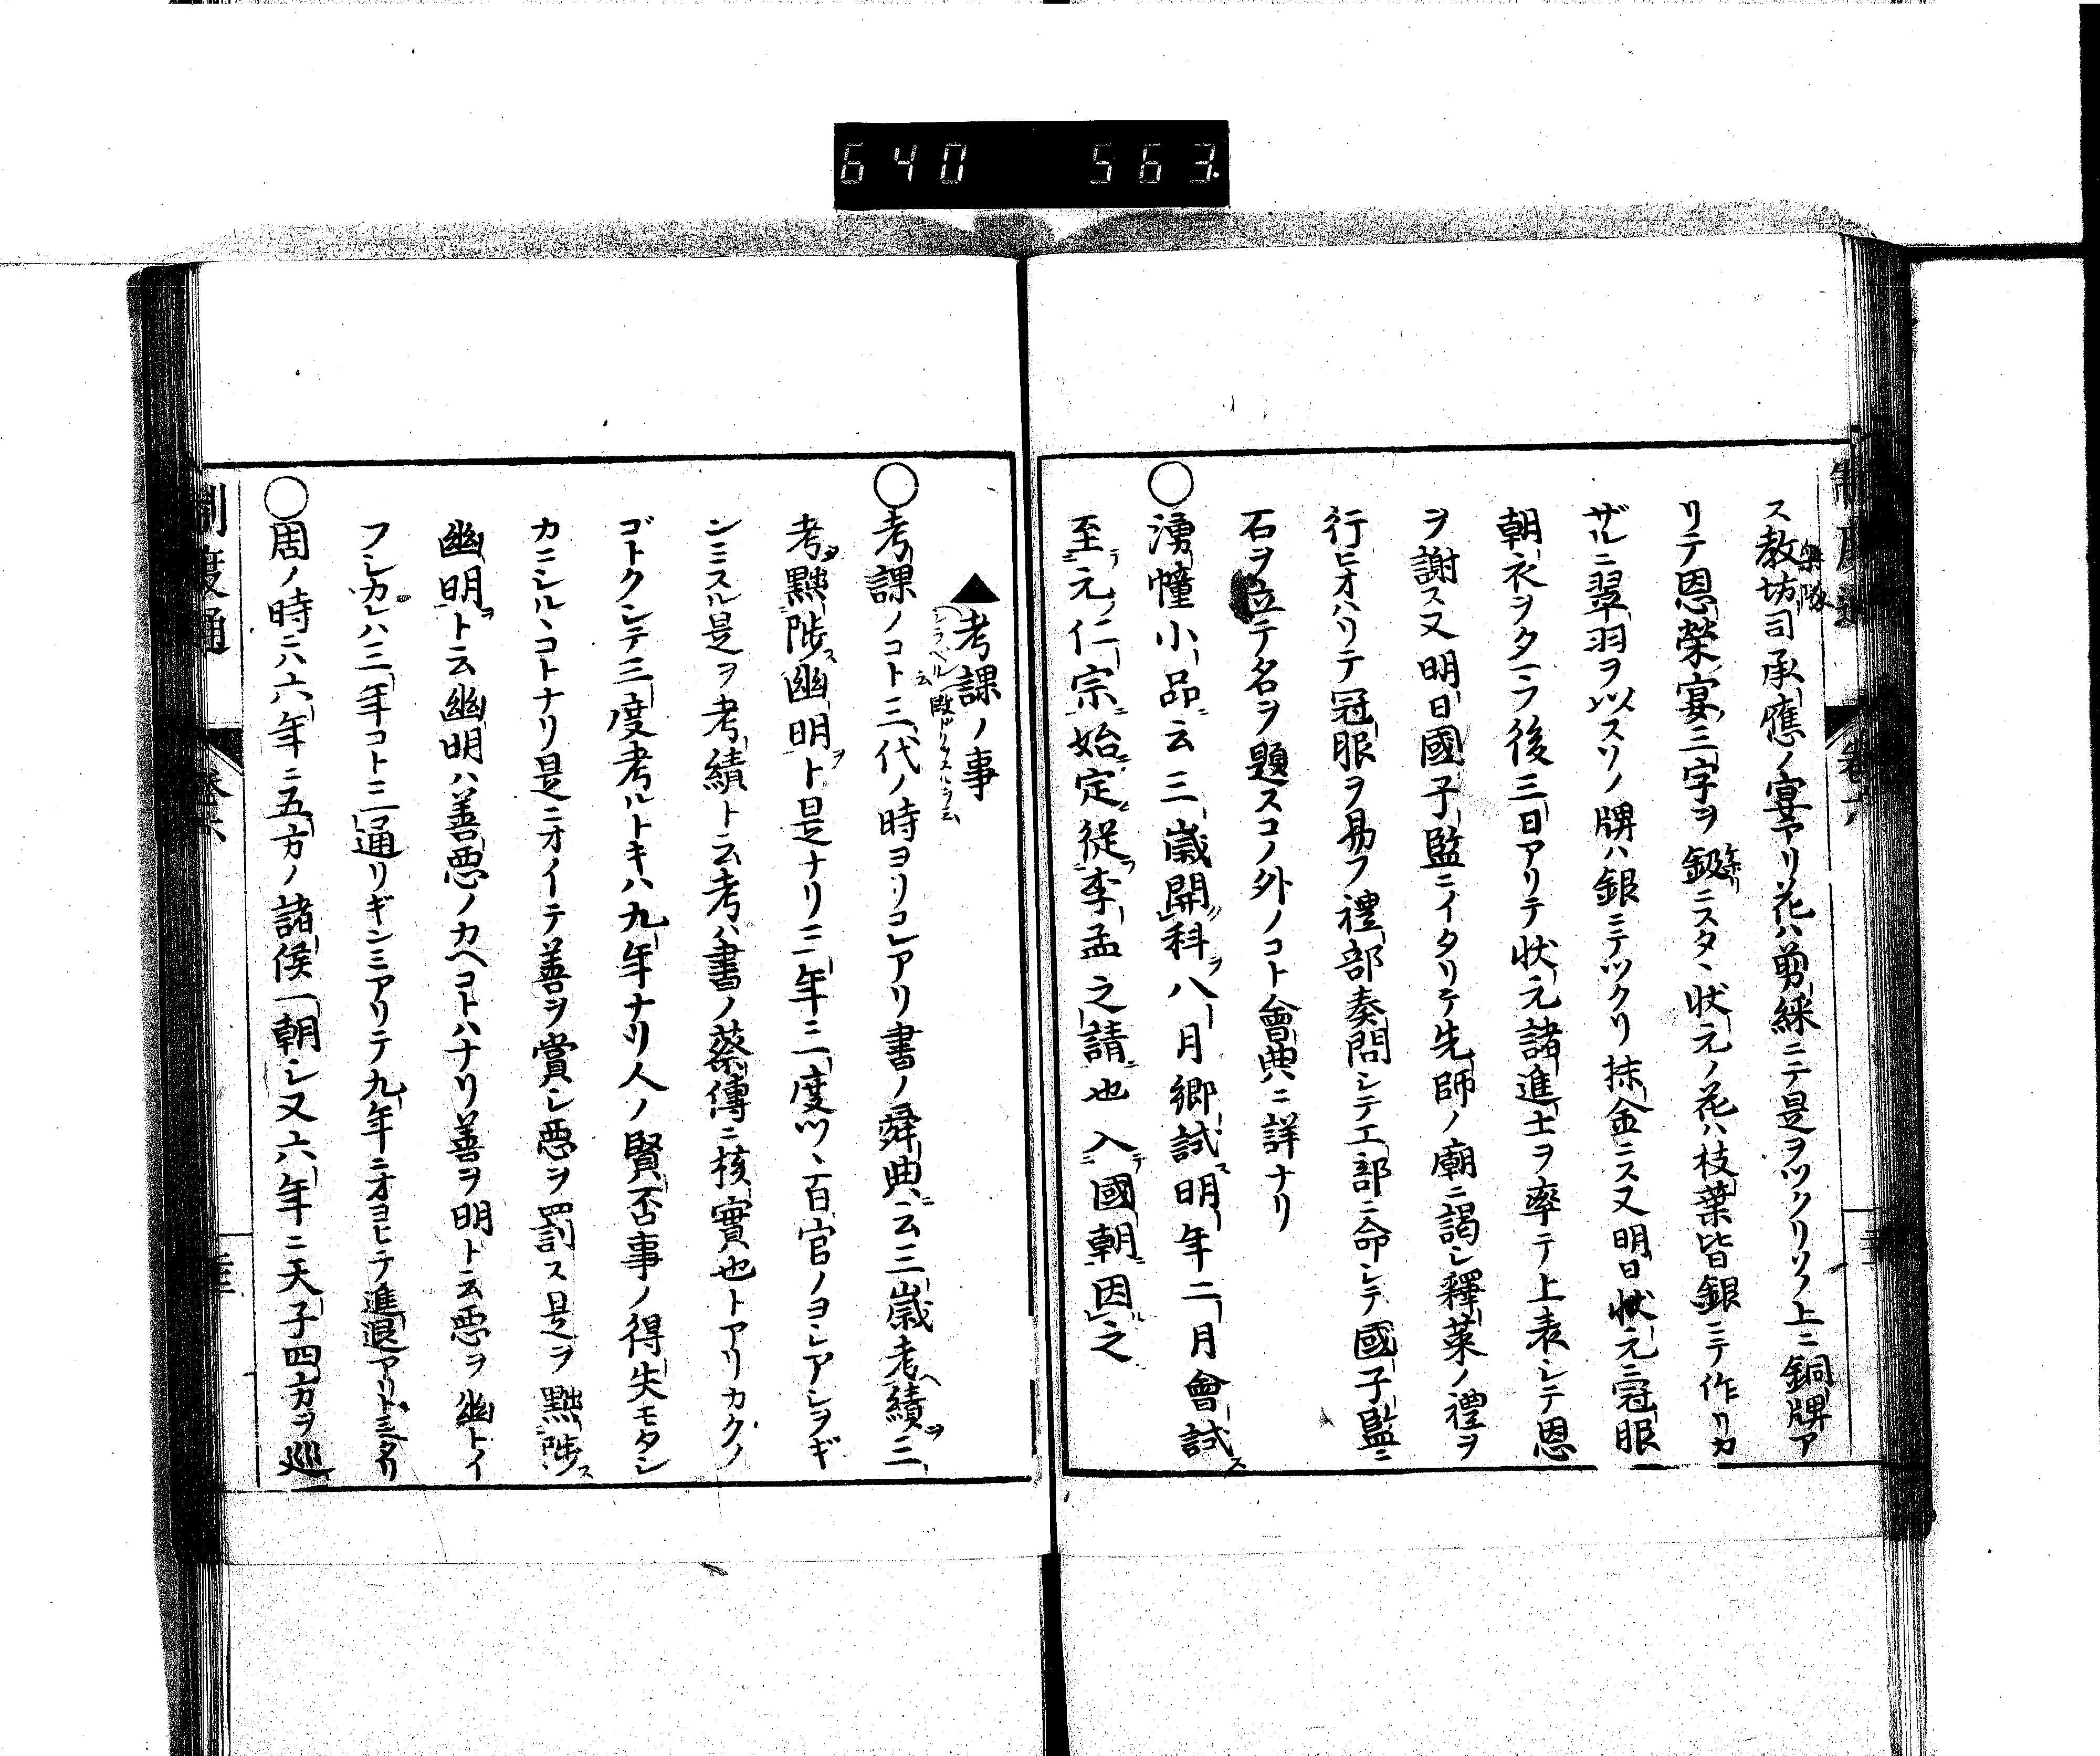 640 563
ス教坊司承應ノ宴アリ花ハ剪綵ニテ是ヲツクリソノ上ニ銅牌ア
リテ恩榮宴三字ヲ鈒ニスタヽ狀元ノ花ハ枝葉皆銀ニテ作リカ
ザルニ翠羽ヲ以スソノ牌ハ銀ニテツクリ抹金ニス又明日狀元ニ冠服
朝衣ヲタマフ後三日アリテ狀元諸進士ヲ率テ上表シテ恩
ヲ謝ス又明日國子監ニイタリテ先師ノ廟ニ謁シ釋菜ノ禮ヲ
行ヒオハリテ冠服ヲ易フ禮部奏問シテ工部ニ命シテ國子監ニ
石ヲ立テ名ヲ題スコノ外ノコト會典ニ詳ナリ
○湧幢小品云三歲開科ヲ八月鄉試ス明年二月會試ス
至テ元ノ仁宗ニ始定ム從フ李孟之請ニ也入テ國朝ニ因ル之
▲考課ノ事
○考課ノコト三代ノ時ヨリコレアリ書ノ舜典ニ云三歲考績ヲ三
考黜陟ス幽明ヲト是ナリ三年ニ一度ツヽ百官ノヨシアシヲギ
ンミスル是ヲ考績ト云考ハ書ノ蔡傳ニ核實也トアリカクノ
ゴトクシテ三度考ルトキハ九年ナリ人ノ賢否事ノ得失モタシ
カニシルヽコトナリ是ニオイテ善ヲ賞シ惡ヲ罰ス是ヲ黜陟ス
幽明ヲト云幽明ハ善惡ノカヘコトハナリ善ヲ明ト云惡ヲ幽トイ
フシカレハ三年コトニ一通リギンミアリテ九年ニオヨヒテ進退アリトミヘタリ
○周ノ時ニハ六年ニ五方ノ諸侯一朝シ又六年ニ天子四方ヲ巡
制度通 卷六